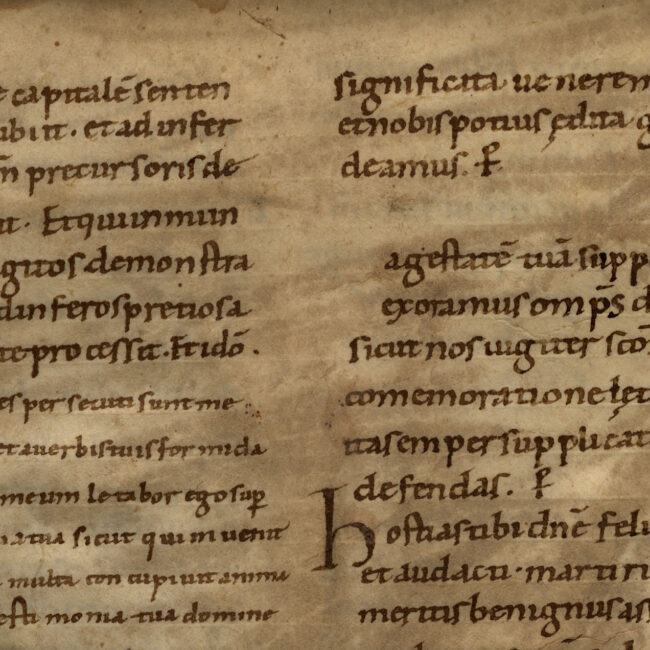 e capitalē senten
ubiit. et ad infer
m̄ precursoris de
it. Et qui in mun
gitos demonstra
d inferos pretiosa
te processit. Et idō.
es persecuti sunt me
et a verbis tuis formida
meum letabor ego sup̄
ia tua sicut qui invenit
multa concupivit anima
esti monia tua domine
significata veneremur
et nobis potius ędita
deamus. P̄
agestatē tuā supp
exoramus omp̄s d
sicut nos iugiter scō
comemoratione lęt
ita semper supplicat
defendas. P̄
hostias tibi dn̄e feli
et audacti martiri
meritis benignus as